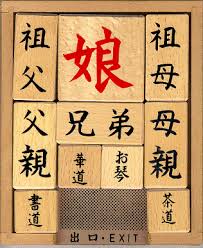 祖父
娘
祖母
父親
兄弟
母親
華道
お琴
書道
茶道
出口・EXIT